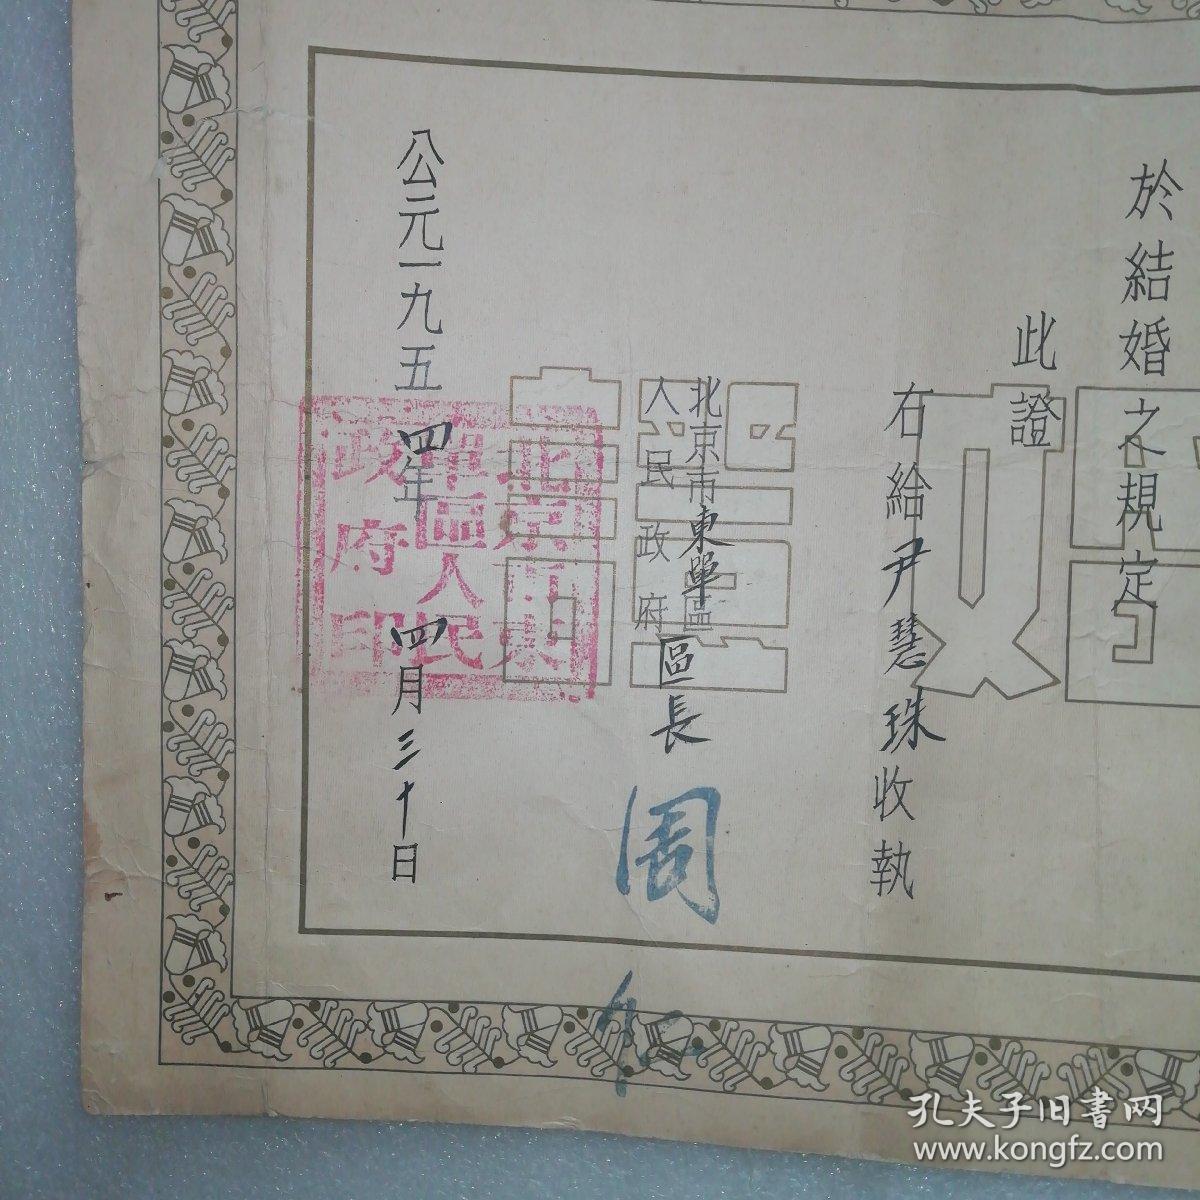 於結婚之規定
此證
右給尹慧珠收執
北京市東單區
人民政府
區長
周
仁
公元一九五四年四月三十日
北京市東
單區人民
政府印
孔夫子旧書网
www.kongfz.com